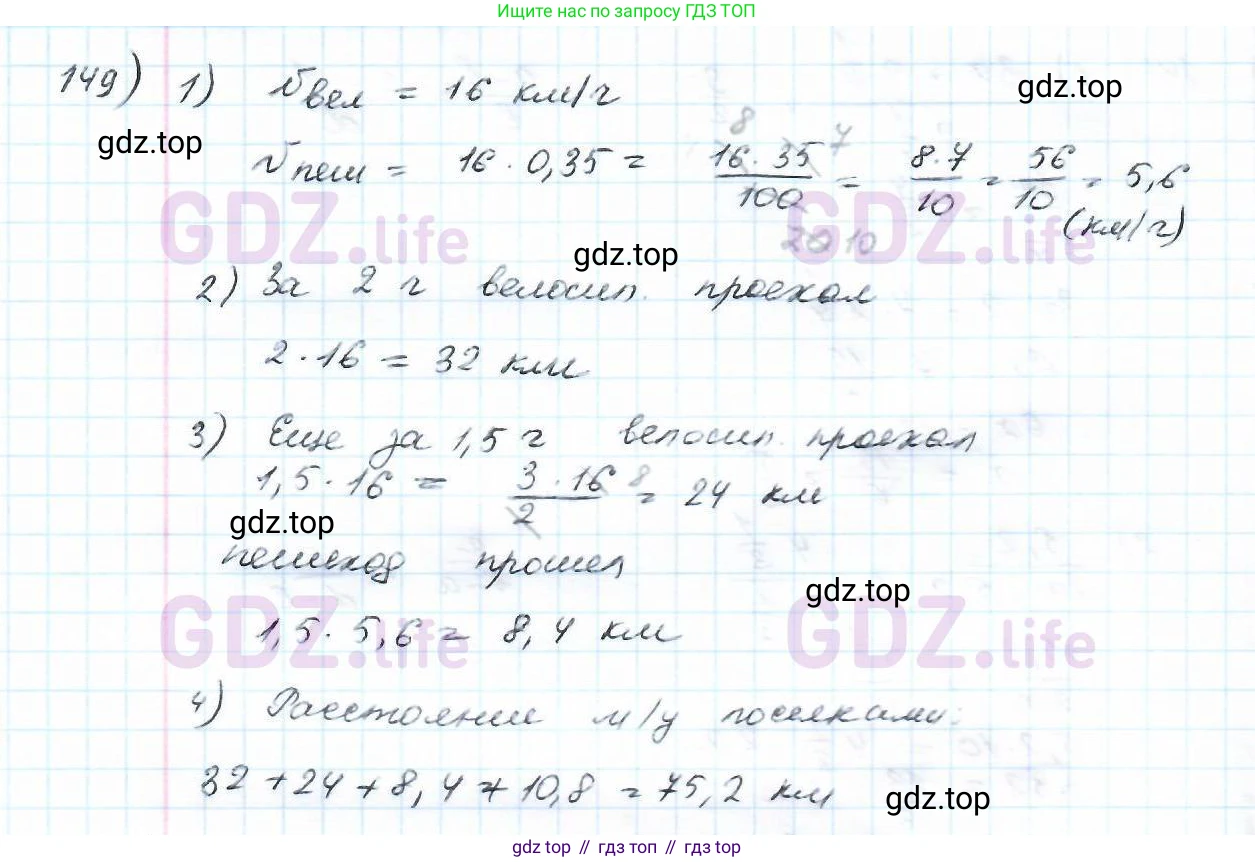 Ищите нас по запросу ГДЗ ТОП
149) 1) vвел = 16 км/ч
gdz.top
gdz.top
vпеш = 16 · 0,35 = 16 · 35 / 100 = 8·7 / 10 = 56 / 10 = 5,6
8 7
20 10
(км/ч)
GDZ.life GDZ.life
gdz.top
2) За 2 ч велосип. проехал
2 · 16 = 32 км
3) Еще за 1,5 ч велосип. проехал
1,5 · 16 = 3 · 16 / 2 = 24 км
8
gdz.top
пешеход прошел
gdz.top
1,5 · 5,6 = 8,4 км
GDZ.life GDZ.life
4) Расстояние м/у поселками:
32 + 24 + 8,4 + 10,8 = 75,2 км
gdz.top
gdz.top // гдз топ // гдз top